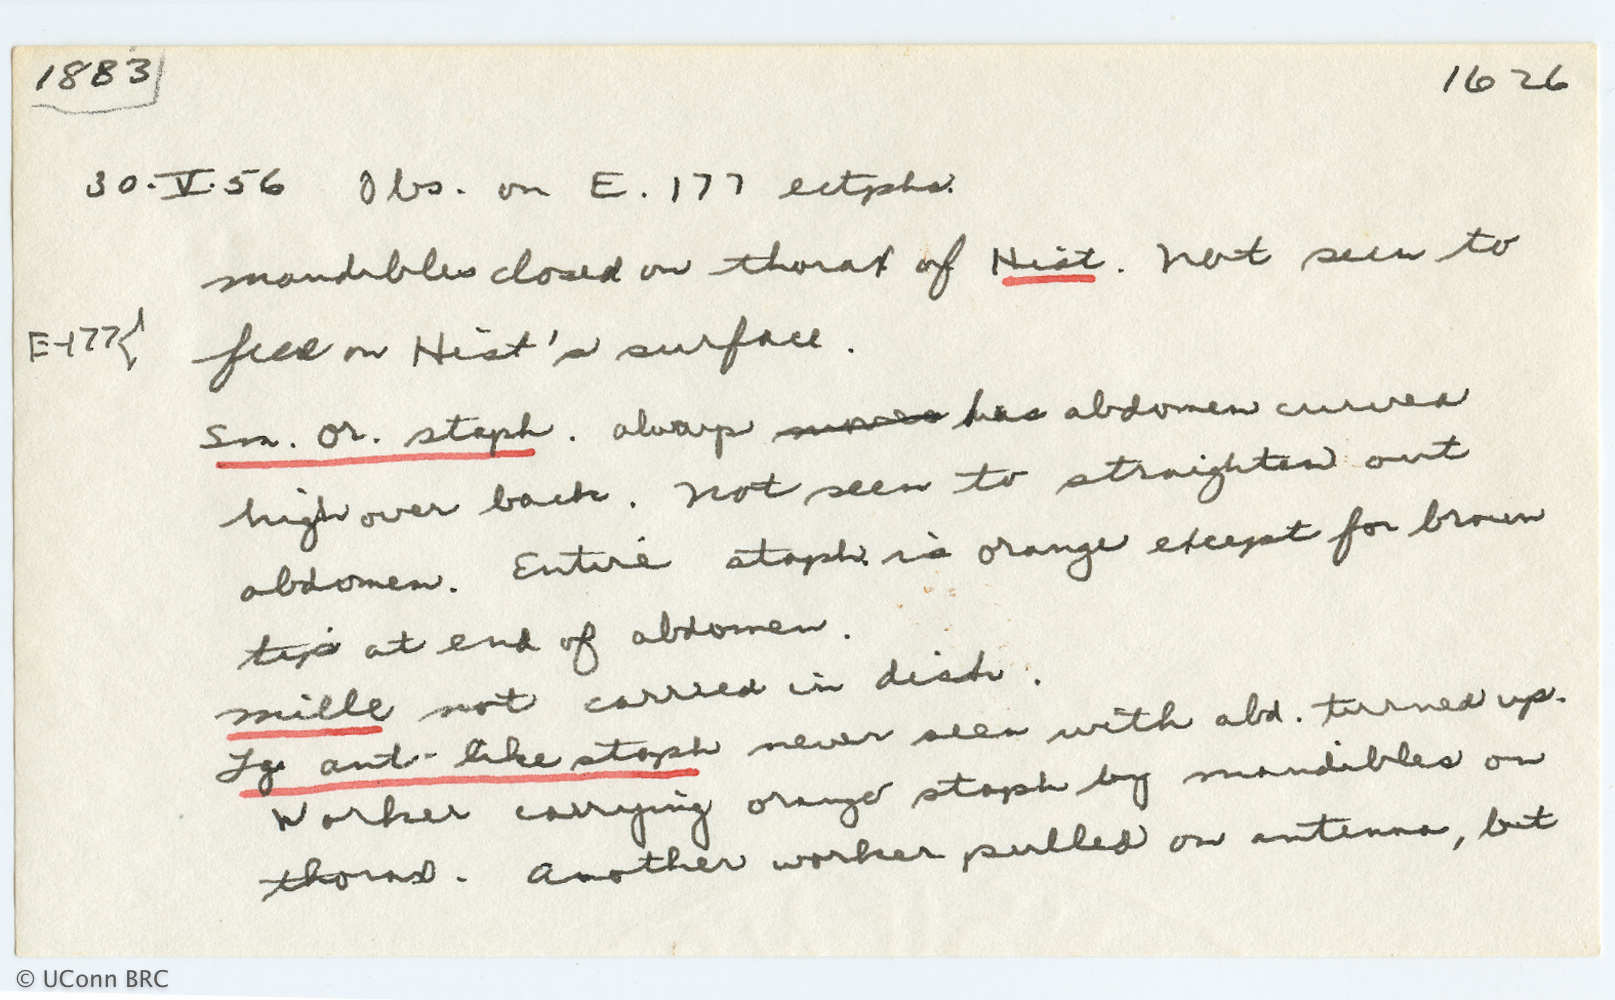 1883
1626
30.V.56 Obs. on E. 177 ectphs.
mandibles closed on thorax of Hist. Not seen to
E-177} feed on Hist's surface.
Sm. Or. staph. always moves has abdomen curved
high over back. Not seen to straighten out
abdomen. Entire staph. is orange except for brown
tip at end of abdomen.
Mille not carried in dish.
Lg. ant-like staph never seen with abd. turned up.
Worker carrying orange staph by mandibles on
thorax. Another worker pulled on antenna, but
© UConn BRC